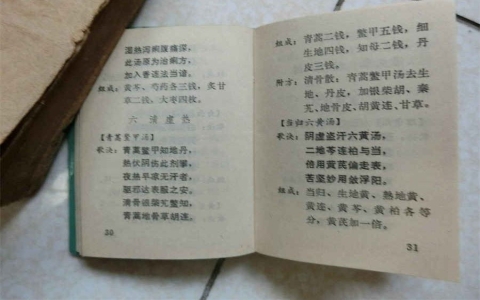 湿热泻痢腹痛深,
此汤原为治痢方,
加入香连法当谙。
组成:黄芩、芍药各三钱,炙甘
草二钱,大枣四枚。
六 清虚热
【青蒿鳖甲汤】
歌诀:青蒿鳖甲知地丹,
热伏阴伤此剂掌,
夜热早凉无汗者,
驱邪达表服之安。
清骨银柴芄鳖知,
青蒿地骨草胡连。
30
组成:青蒿二钱,鳖甲五钱,细
生地四钱,知母二钱,丹
皮三钱。
附方:清骨散:青蒿鳖甲汤去生
地、丹皮,加银柴胡、秦
芄、地骨皮、胡黄连、甘草。
【当归六黄汤】
歌诀:阴虚盗汗六黄汤,
二地芩连柏与当,
倍用黄芪偏走表,
苦坚妙用敛浮阳。
组成:当归、生地黄、熟地黄、
黄连、黄芩、黄柏各等
分,黄芪加一倍。
31